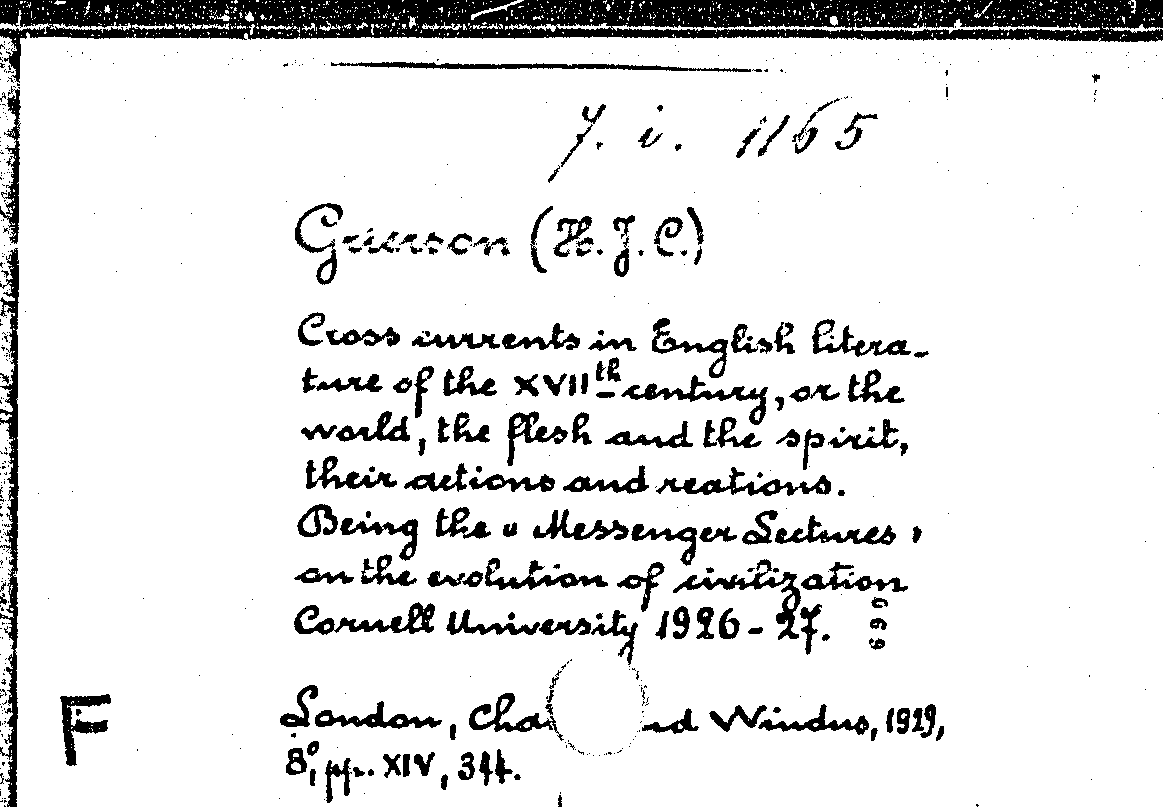 7. i. 1165
Grierson (H.J.C.)
Cross currents in English litera-
ture of the XVIIth century, or the
world, the flesh and the spirit,
their actions and reations.
Being the « Messenger Lectures »
on the evolution of civilization
Cornell University 1926-27.
London, Cha nd Windus, 1929,
8°, pp. XIV, 344.
F